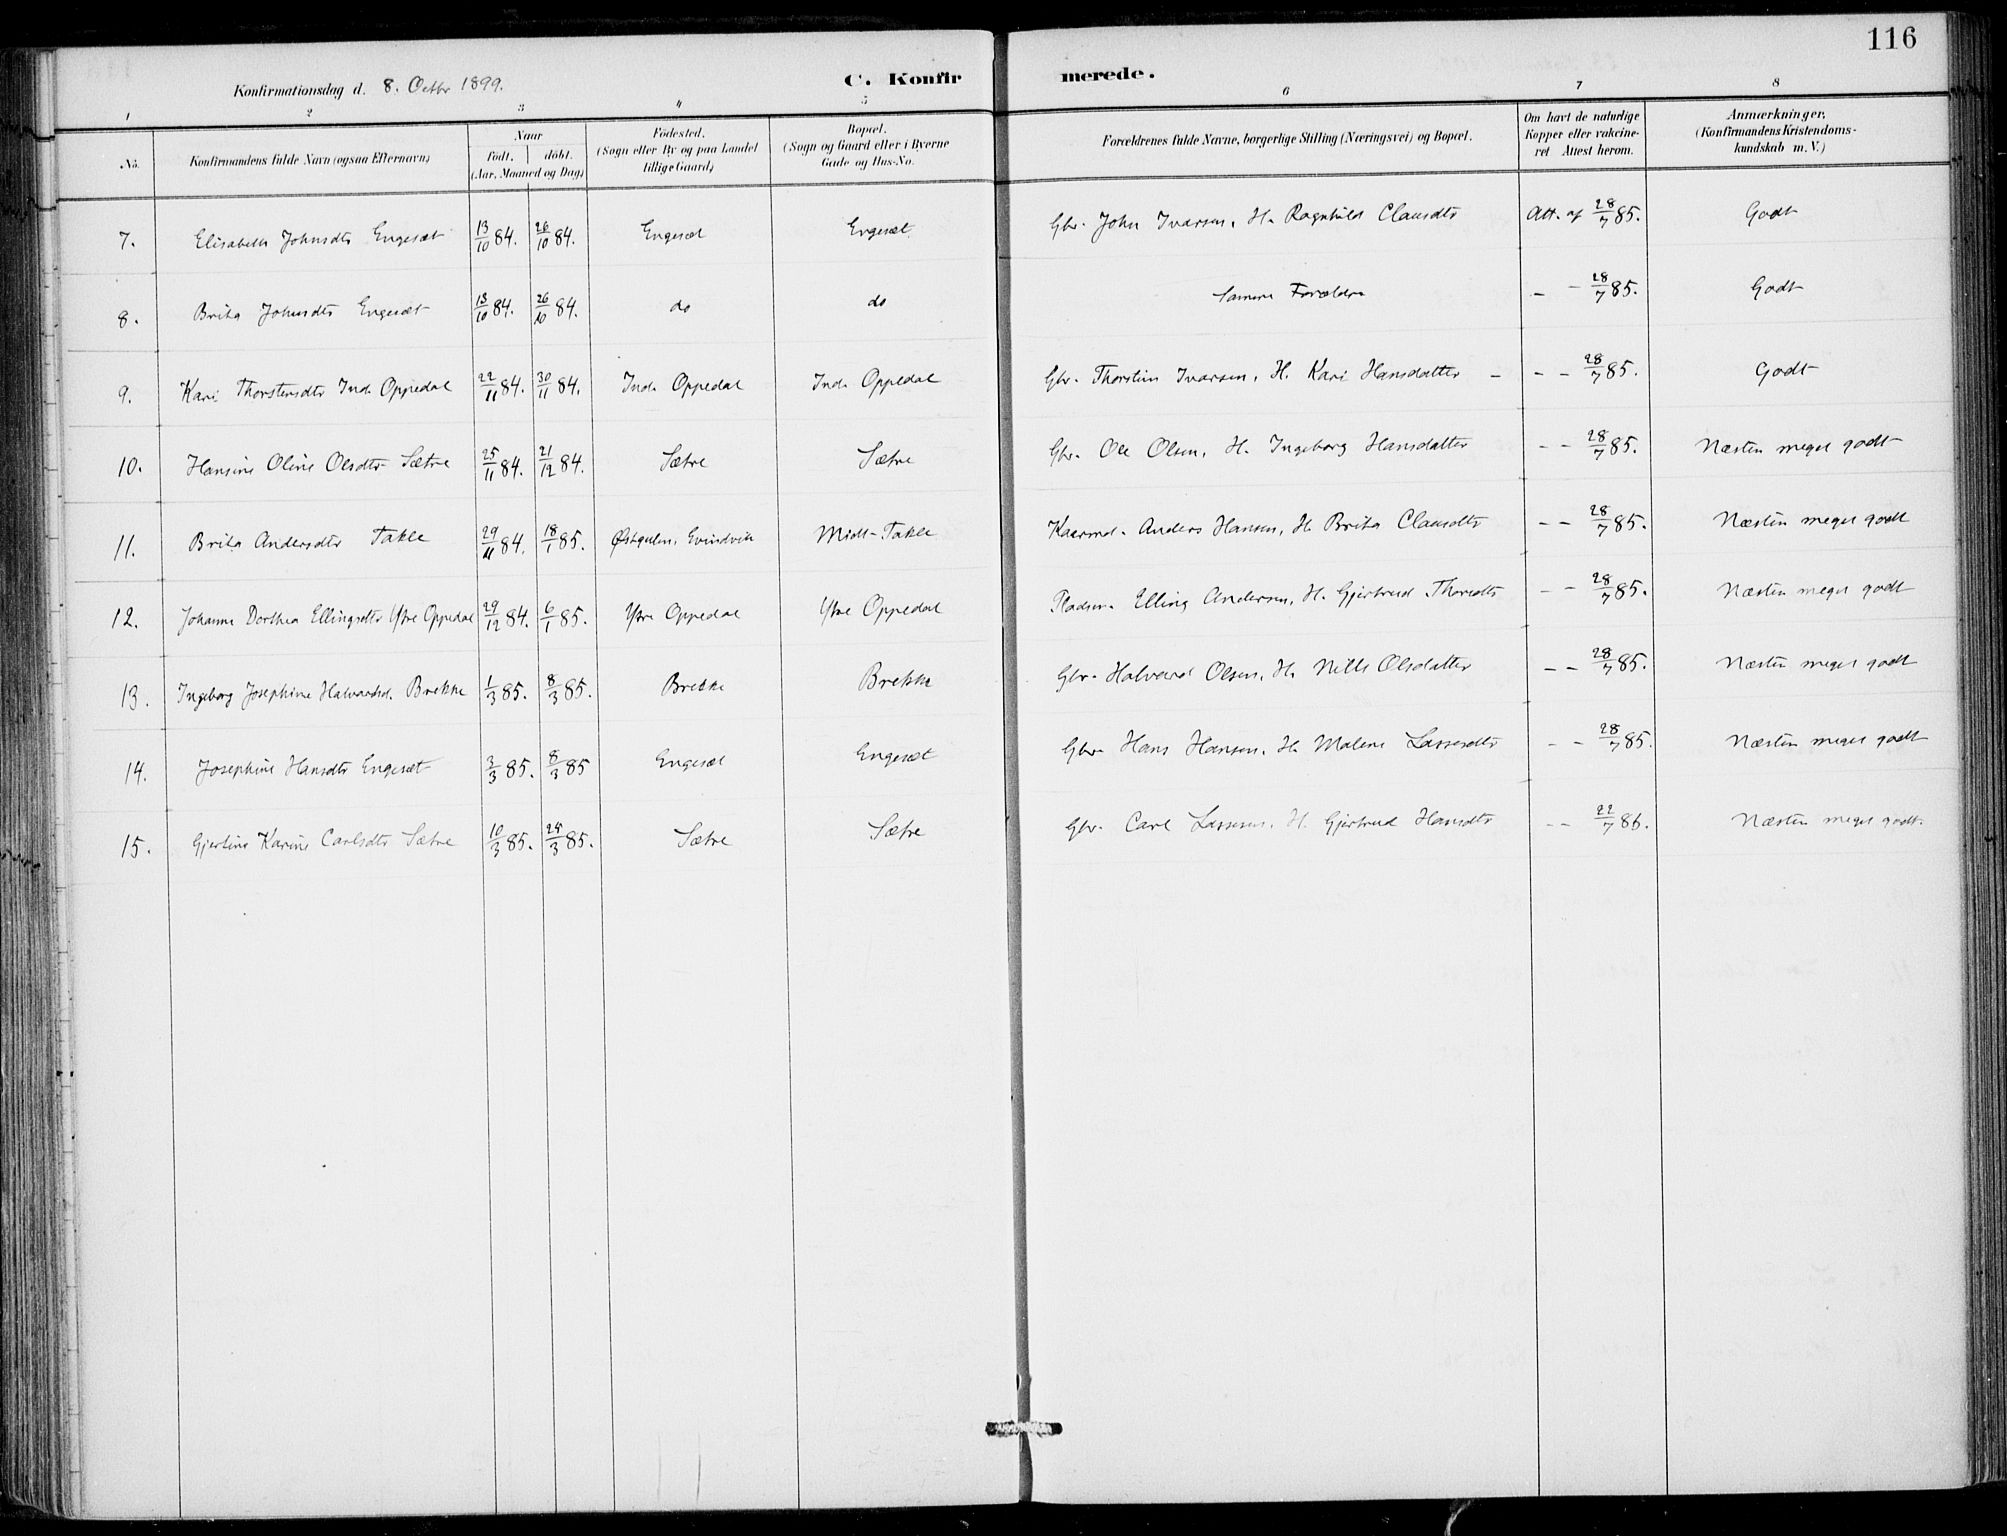 116
Konfirmationsdag d. 8. Octbr 1899. C. Konfirmerede.
1 2 3 4 5 6 7 8
No. Konfirmandens fulde Navn (ogsaa Efternavn) Naar født. døbt. (Aar, Maaned og Dag) Fødested. (Sogn eller By og paa Landet tillige Gaard) Bopæl. (Sogn og Gaard eller i Byerne Gade og Hus-No. Forældrenes fulde Navne, borgerlige Stilling (Næringsvei) og Bopæl. Om havt de naturlige Kopper eller vakcineret Attest herom. Anmærkninger. (Konfirmandens Kristendomskundskab m. V.)
7. Elisabeth Johnsdtr Engesæt 13/10 84. 26/10 84. Engesæt Engesæt Gbr. John Ivarsen, H. Ragnhild Clausdtr Att. af 28/7 85. Godt
8. Brita Johnsdtr Engesæt 13/10 84. 26/10 84. do do Samme Forældre - - 28/7 85. Godt
9. Kari Thorstensdtr Ind. Oppedal 22/11 84. 30/11 84. Ind. Oppedal Ind. Oppedal Gbr. Thorstein Ivarsen, H. Kari Hansdatter - - - 28/7 85. Godt
10. Hansine Oline Olsdtr Sætre 25/11 84. 21/12 84. Sætre Sætre Gbr. Ole Olsen, H. Ingeborg Hansdatter - - 28/7 85. Næsten meget godt
11. Brita Andersdtr Takle 29/11 84. 18/1 85. Østgulen, Evindvik Midt-Takle Kaarmd. Anders Hansen, H. Brita Clausdtr - - 28/7 85. Næsten meget godt
12. Johanne Dorthea Ellingsdtr Ytre Oppedal 29/12 84. 6/1 85. Ytre Oppedal Ytre Oppedal Pladsm. Elling Andersen, H. Gjertrud Thoresdtr - - 28/7 85. Næsten meget godt
13. Ingeborg Josephine Halvardsd. Brekke 1/3 85. 8/3 85. Brekke Brekke Gbr. Halvard Olsen, H. Nille Olsdatter - - 28/7 85. Næsten meget godt
14. Josephine Hansdtr Engesæt 3/3 85. 8/3 85 Engesæt Engesæt Gbr. Hans Hansen, H. Malene Lassesdtr - - 28/7 85. Næsten meget godt
15. Gjertine Karine Carlsdtr Sætre 10/3 85. 25/3 85. Sætre Sætre Gbr. Carl Lassesen, H. Gjertrud Hansdtr - - 22/7 86. Næsten meget godt.